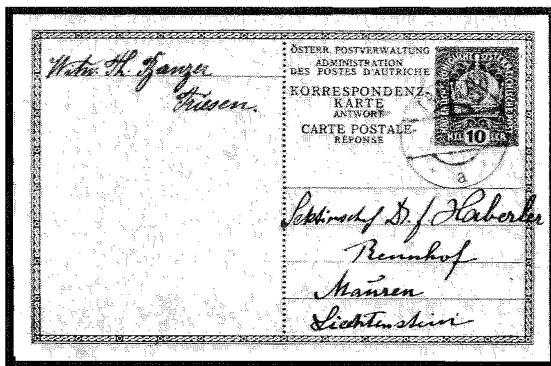 Wwtw. Th. Banzer
Triesen.
ÖSTERR. POSTVERWALTUNG
ADMINISTRATION
DES POSTES D'AUTRICHE
KORRESPONDENZ-
KARTE
ANTWORT
CARTE POSTALE-
RÉPONSE
10
a
Sektionschef D. f. Haberler
Rennhof
Mauren
Liechtenstein